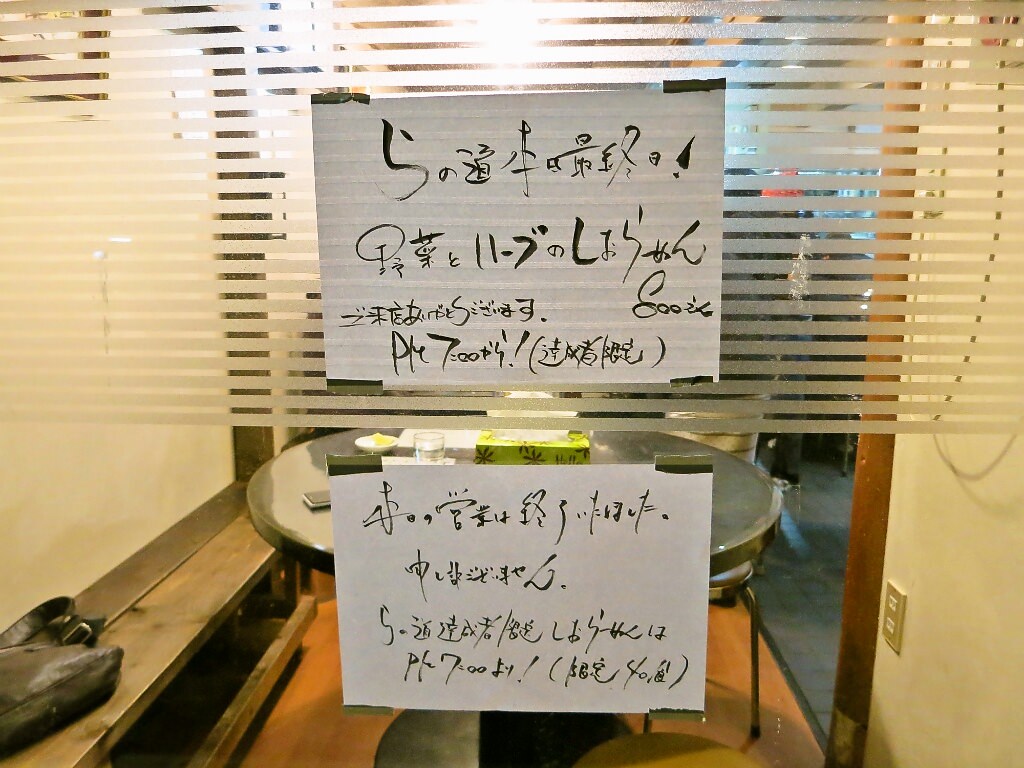 らの道 本日最終日！
野菜とハーブのしおらーめん
800えん
ご来店ありがとうございます。
PM 7:00から！(達成者限定)
本日の営業は終了いたしました。
申し訳ございません。
らの道達成者限定しおらーめんは
PM 7:00より！(限定40食)